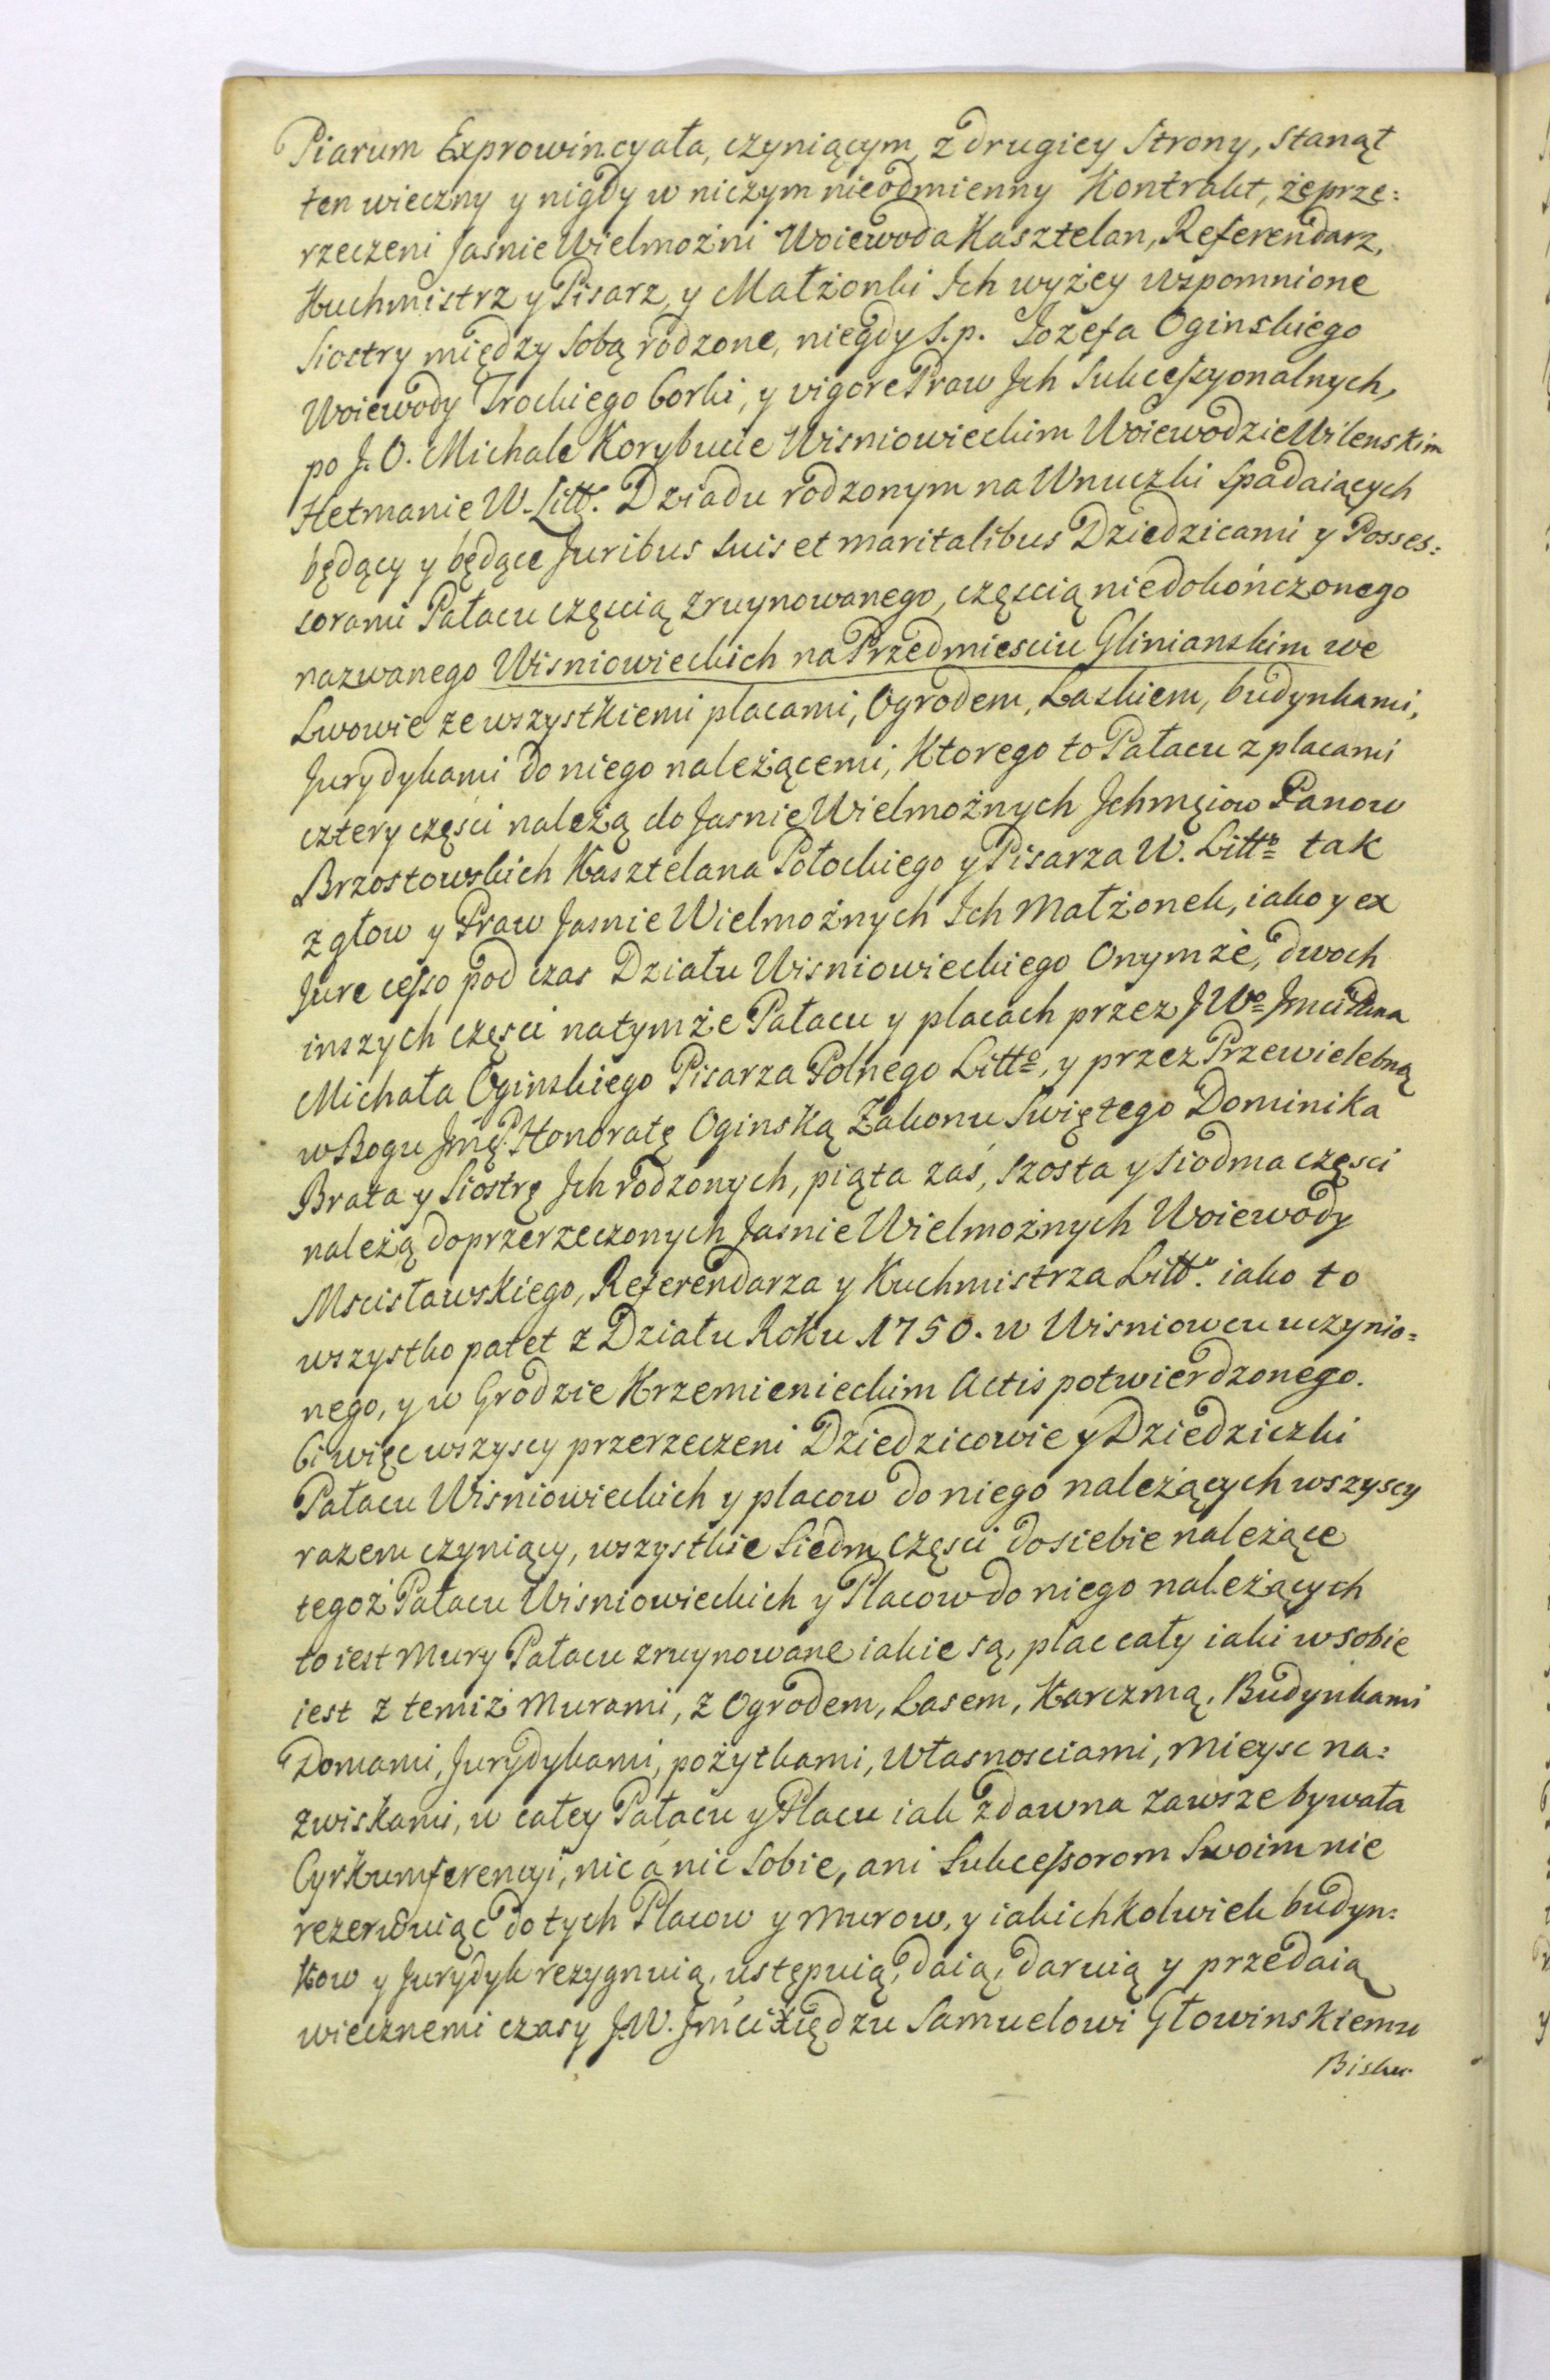 Piarum Exprowincyała, czyniącym, z drugiey Strony, stanął
ten wieczny y nigdy w niczym nieodmienny Kontrakt, że prze:
rzeczeni Jasnie Wielmożni Woiewoda Kasztelan, Referendarz,
Kuchmistrz y Pisarz, y Małżonki Ich wyżey wzpomnione
Siostry między Sobą rodzone, niegdy S.p. Jozefa Oginskiego
Woiewody Trockiego Corki, y vigore Praw Jch Sukcessyonalnych,
po J. O. Michale Korybucie Wisniowieckim Woiewodzie Wilenskim
Hetmanie W. Littr. Dziadu rodzonym na Wnuczki Spadaiących
będący y będące Juribus suis et maritalibus Dziedzicami y Posses:
sorami Pałacu częscią zruynowanego, częscią niedokończonego
nazwanego Wisniowieckich na Przedmiesciu Glinianskim we
Lwowie ze wszystkiemi placami, Ogrodem, Laskiem, budynkami,
Jurydykami do niego należącemi, Ktorego to Pałacu z placami
cztery częsci należą do Jasnie Wielmożnych Jchmęiow Panow
Brzostowskich Kasztelana Połockiego y Pisarza W. Littr tak
z głow y Praw Jasnie Wielmożnych Ich Małżonek, iako y ex
Jure cesso pod czas Działu Wisniowieckiego Onymże, dwoch
inszych częsci na tymże Pałacu y placach przez JWo Jmci Pana
Michała Oginskiego Pisarza Polnego Litto, y przez Przewielebną
w Bogu Jmę P. Honoratę Oginską Zakonu Swiętego Dominika
Brata y Siostrę Jch rodzonych, piąta zaś, szosta y siodma częsci
należą do przerzeczonych Jasnie Wielmożnych Woiewody
Mscisławskiego, Referendarza y Kuchmistrza Littr. iako to
wszystko patet z Działu Roku 1750. w Wisniowcu uczynio=
nego, y w Grodzie Krzemienieckim Actis potwierdzonego.
Ci więc wszyscy przerzeczeni Dziedzicowie y Dziedziczki
Pałacu Wisniowieckich y placow do niego należących wszyscy
razem czyniący, wszystkie Siedm częsci do siebie należące
tegoż Pałacu Wisniowieckich y Placow do niego należących
to iest Mury Pałacu zruynowane iakie są, plac cały iaki w sobie
iest z temiż Murami, z Ogrodem, Lasem, Karczmą, Budynkami
Domami, Jurydykami, pożytkami, własnosciami, mieysc na:
zwiskami, w całey Pałacu y Placu iak zdawna zawsze bywała
Cyrkumferencyi, nic a nic Sobie, ani Sukcessorom Swoim nie
rezerwuiąc do tych Placow y murow, y iakichkolwiek budyn:
kow y Jurydyk rezygnuią, ustępuią, daią, daruią y przedaią
wiecznemi czasy J.W. Jmci Xiędzu Samuelowi Głowinskiemu
Bisku-